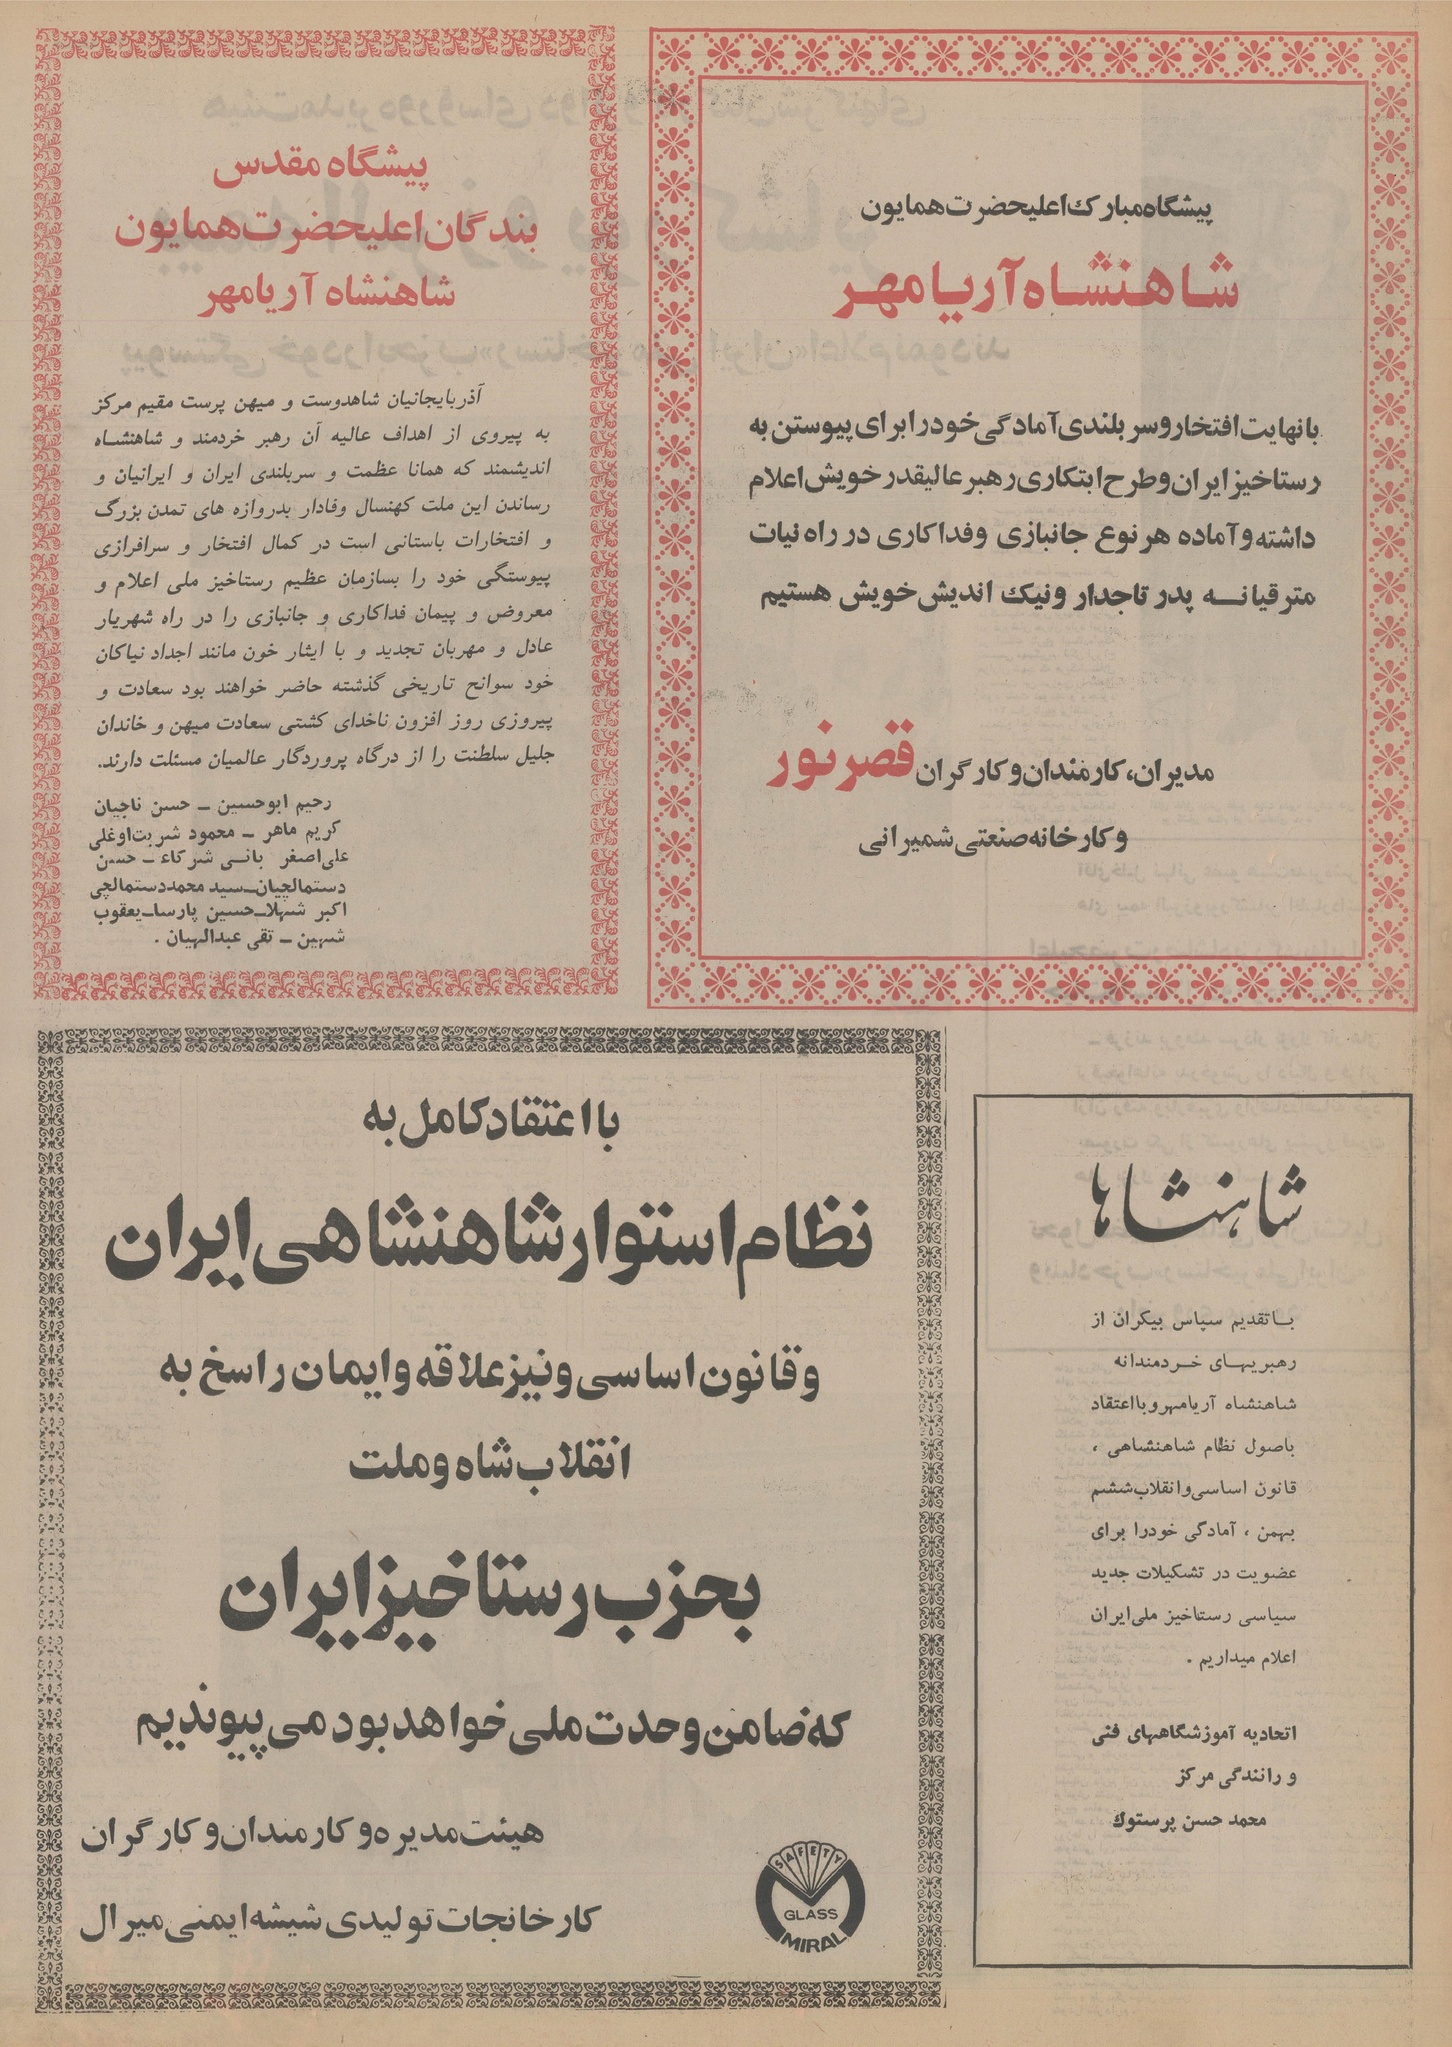 پیشگاه مبارک اعلیحضرت همایون
شاهنشاه آریامهر
با نهایت افتخار و سربلندی آمادگی خود را برای پیوستن به
رستاخیز ایران و طرح ابتکاری رهبر عالیقدر خویش اعلام
داشته و آماده هر نوع جانبازی و فداکاری در راه نیات
مترقیانه پدر تاجدار و نیک اندیش خویش هستیم
مدیران، کارمندان و کارگران قصر نور
و کارخانه صنعتی شمیرانی
پیشگاه مقدس
بندگان اعلیحضرت همایون
شاهنشاه آریامهر
آذربایجانیان شاهدوست و میهن پرست مقیم مرکز
به پیروی از اهداف عالیه آن رهبر خردمند و شاهنشاه
اندیشمند که همانا عظمت و سربلندی ایران و ایرانیان و
رساندن این ملت کهنسال وفادار بدروازه های تمدن بزرگ
و افتخارات باستانی است در کمال افتخار و سرافرازی
پیوستگی خود را بسازمان عظیم رستاخیز ملی اعلام و
معروض و پیمان فداکاری و جانبازی را در راه شهریار
عادل و مهربان تجدید و با ایثار خون مانند اجداد نیاکان
خود سوانح تاریخی گذشته حاضر خواهند بود سعادت و
پیروزی روز افزون ناخدای کشتی سعادت میهن و خاندان
جلیل سلطنت را از درگاه پروردگار عالمیان مسئلت دارند.
رحیم ابوحسین ـ حسن ناجیان
کریم ماهر ـ محمود شربت‌اوغلی
علی‌اصغر بانی شرکاء ـ حسن
دستمالچیان ـ سید محمد دستمالچی
اکبر شهلا ـ حسین پارسا ـ یعقوب
شهین ـ تقی عبدالهیان .
شاهنشاها
با تقدیم سپاس بیکران از
رهبریهای خردمندانه
شاهنشاه آریامهر و با اعتقاد
باصول نظام شاهنشاهی ،
قانون اساسی و انقلاب ششم
بهمن ، آمادگی خودرا برای
عضویت در تشکیلات جدید
سیاسی رستاخیز ملی ایران
اعلام میداریم .
اتحادیه آموزشگاههای فنی
و رانندگی مرکز
محمد حسن پرستوک
با اعتقاد کامل به
نظام استوار شاهنشاهی ایران
و قانون اساسی و نیز علاقه و ایمان راسخ به
انقلاب شاه و ملت
بحزب رستاخیز ایران
که ضامن وحدت ملی خواهد بود می پیوندیم
هیئت مدیره و کارمندان و کارگران
کارخانجات تولیدی شیشه ایمنی میرال
SAFETY
GLASS
MIRAL